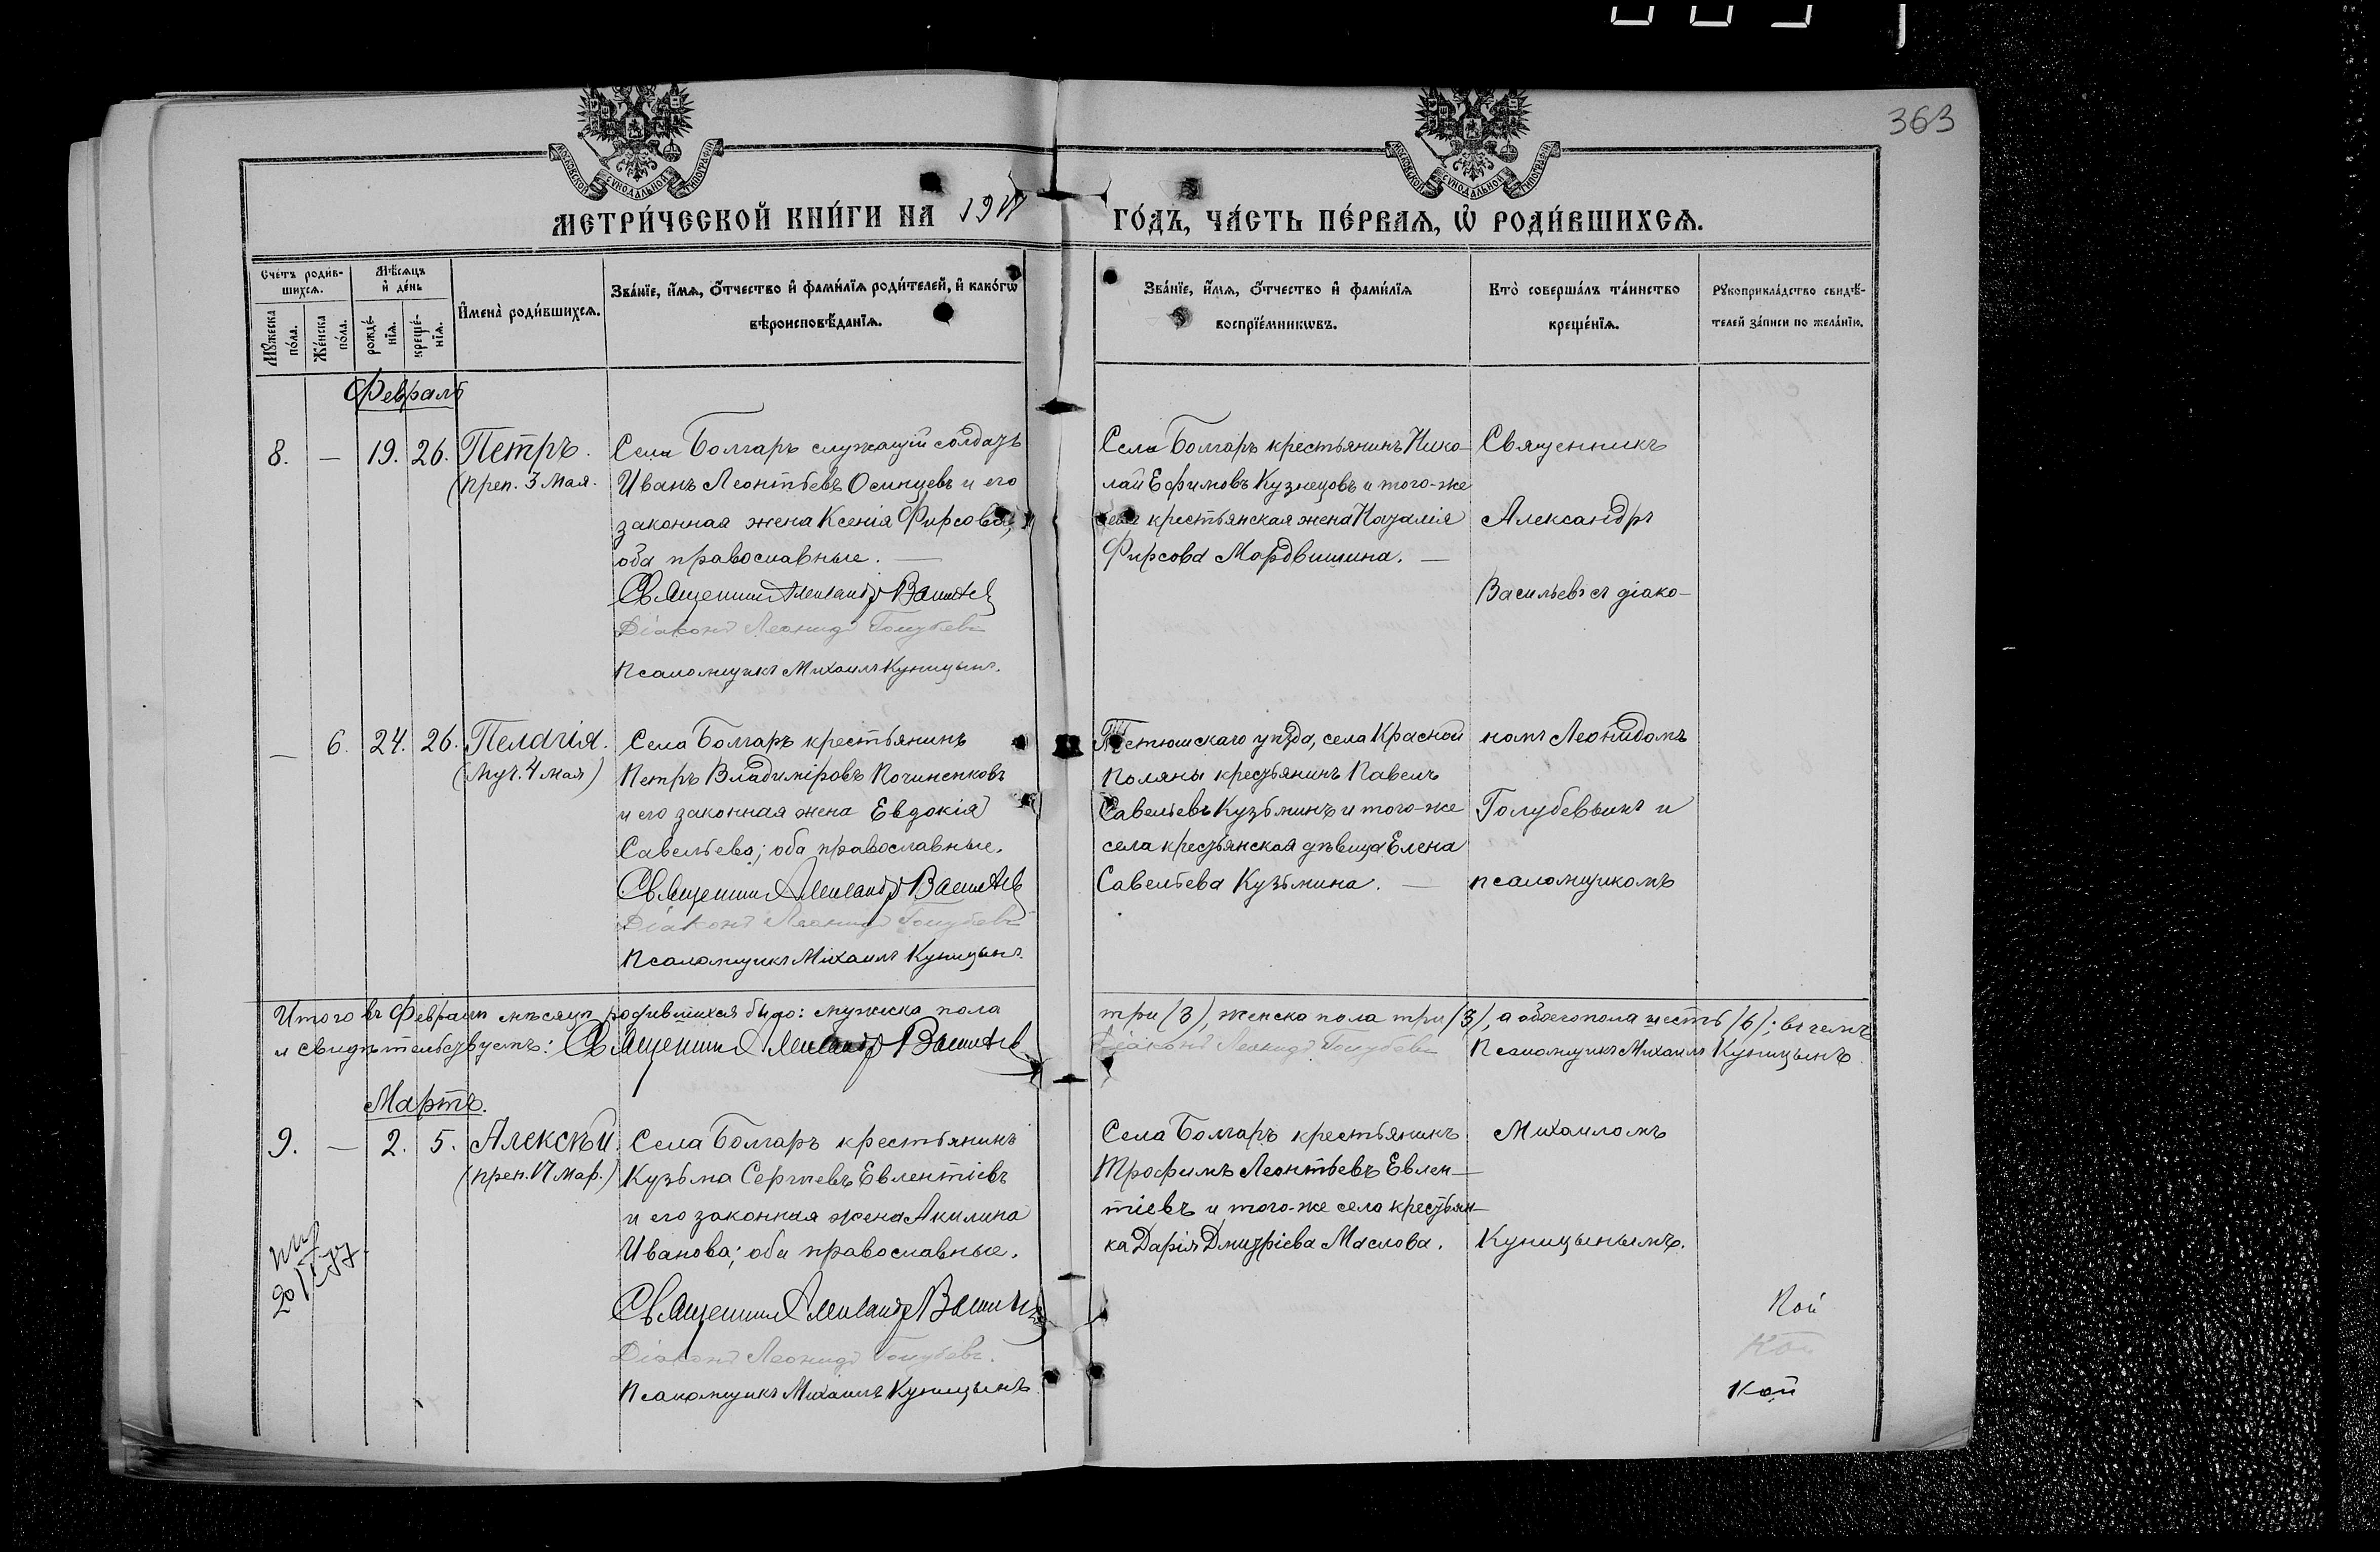 363
МОСКОВСКОЙ СѴНОДАЛЬНОЙ ТИПОГРАФІИ
МОСКОВСКОЙ СѴНОДАЛЬНОЙ ТИПОГРАФІИ
МЕТРИ́ЧЕСКОЙ КНИ́ГИ НА
ГО́ДЪ, ЧА́СТЬ ПЕ́РВАѦ, Ѡ҆ РОДИ́ВШИХСѦ.
Сче́тъ роди́в-
шихсѧ.
Мѣ́сѧцъ
и҆ де́нь
И҆мена̀ роди́вшихсѧ.
Зва́нїе, и҆́мѧ, ѻ҆́тчество и҆ фами́лїѧ роди́телей, и҆ како́гѡ
вѣроисповѣ́данїѧ.
Мꙋ́жеска по́ла.
Же́нска по́ла.
рожде́-
нїѧ.
креще́-
нїѧ.
Зва́нїе, и҆́мѧ, ѻ҆́тчество и҆ фами́лїѧ
воспрїе́мникѡвъ.
Кто̀ соверша́лъ та́инство
креще́нїѧ.
Рꙋкоприкла́дство свидѣ́-
телей за́писи по жела́нїю.
Февраль
8. — 19. 26. Петръ.
(преп. 3 Мая.
Села Болгаръ служащій солдатъ
Иванъ Леонтьевъ Осинцевъ и его
законная жена Ксенія Фирсова,
оба православные. —
Священникъ Александръ Васильевъ
Діаконъ Леонидъ Голубевъ
Псаломщикъ Михаилъ Куницынъ.
Села Болгаръ крестьянинъ Нико-
лай Ефимовъ Кузнецовъ и того-же
села крестьянская жена Наталія
Фирсова Мордвишина. —
Священникъ
Александръ
Васильевъ съ діако-
— 6. 24. 26. Пелагія.
(муч. 4 мая)
Села Болгаръ крестьянинъ
Петръ Владиміровъ Починенковъ
и его законная жена Евдокія
Савельева; оба православные.
Священникъ Александръ Васильевъ
Діаконъ Леонидъ Голубевъ
Псаломщикъ Михаилъ Куницынъ.
Тетюшскаго уѣзда, села Красной
Поляны крестьянинъ Павелъ
Савельевъ Кузьминъ и того-же
села крестьянская дѣвица Елена
Савельева Кузьмина. —
номъ Леонидомъ
Голубевымъ и
псаломщикомъ
Итого въ Февралѣ мѣсяцѣ родившихся было: мужеска пола
три (3), женска пола три (3), а обоего пола шесть (6); въ чемъ
и свидѣтельствуемъ: Священникъ Александръ Васильевъ
Діаконъ Леонидъ Голубевъ Псаломщикъ Михаилъ Куницынъ.
Мартъ.
9. — 2. 5. Алексѣй.
(преп. 17 мар.)
Села Болгаръ крестьянинъ
Кузьма Сергѣевъ Евлентіевъ
и его законная жена Акилина
Иванова; оба православные.
Священникъ Александръ Васильевъ
Діаконъ Леонидъ Голубевъ.
Псаломщикъ Михаилъ Куницынъ
Села Болгаръ крестьянинъ
Трофимъ Леонтьевъ Евлен-
тіевъ и того-же села крестьян-
ка Дарія Дмитріева Маслова.
Михаиломъ
Куницынымъ.
Кой
Кой